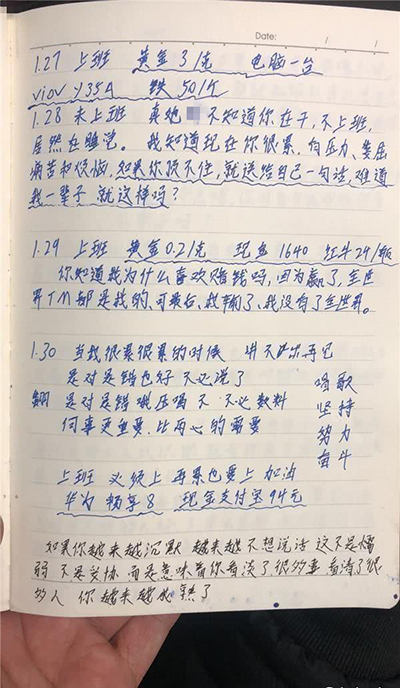 Date: / /
1.27 上班 黄金31克 电脑一台
viov y35A 铁501斤
1.28 未上班 真他 不知道你在干,不上班,
居然在睡觉。我知道现在你很累,有压力、委屈
痛苦和烦恼,如果你顶不住,就送给自己一句话,难道
我一辈子就这样吗?
1.29 上班 黄金0.21克 现金1640 红牛24/瓶
你知道我为什么喜欢赌钱吗,因为赢了,全世
界TM都是我的、可最后,我输了、我没有了全世界。
1.30 当我很累很累的时候 再见
是对是错也好 不必说了 唱歌
是对是错 不必数料 坚持
何事更重要,比两心的需要 努力
奋斗
上班 必须上 再累也要上 加油
华为 畅享8 现金支付宝94元
如果你越来越沉默 越来越不想说话 这不是懦
弱 不是妥协 而是意味着你看淡了很多事 看清了很
多人 你越来越成熟了